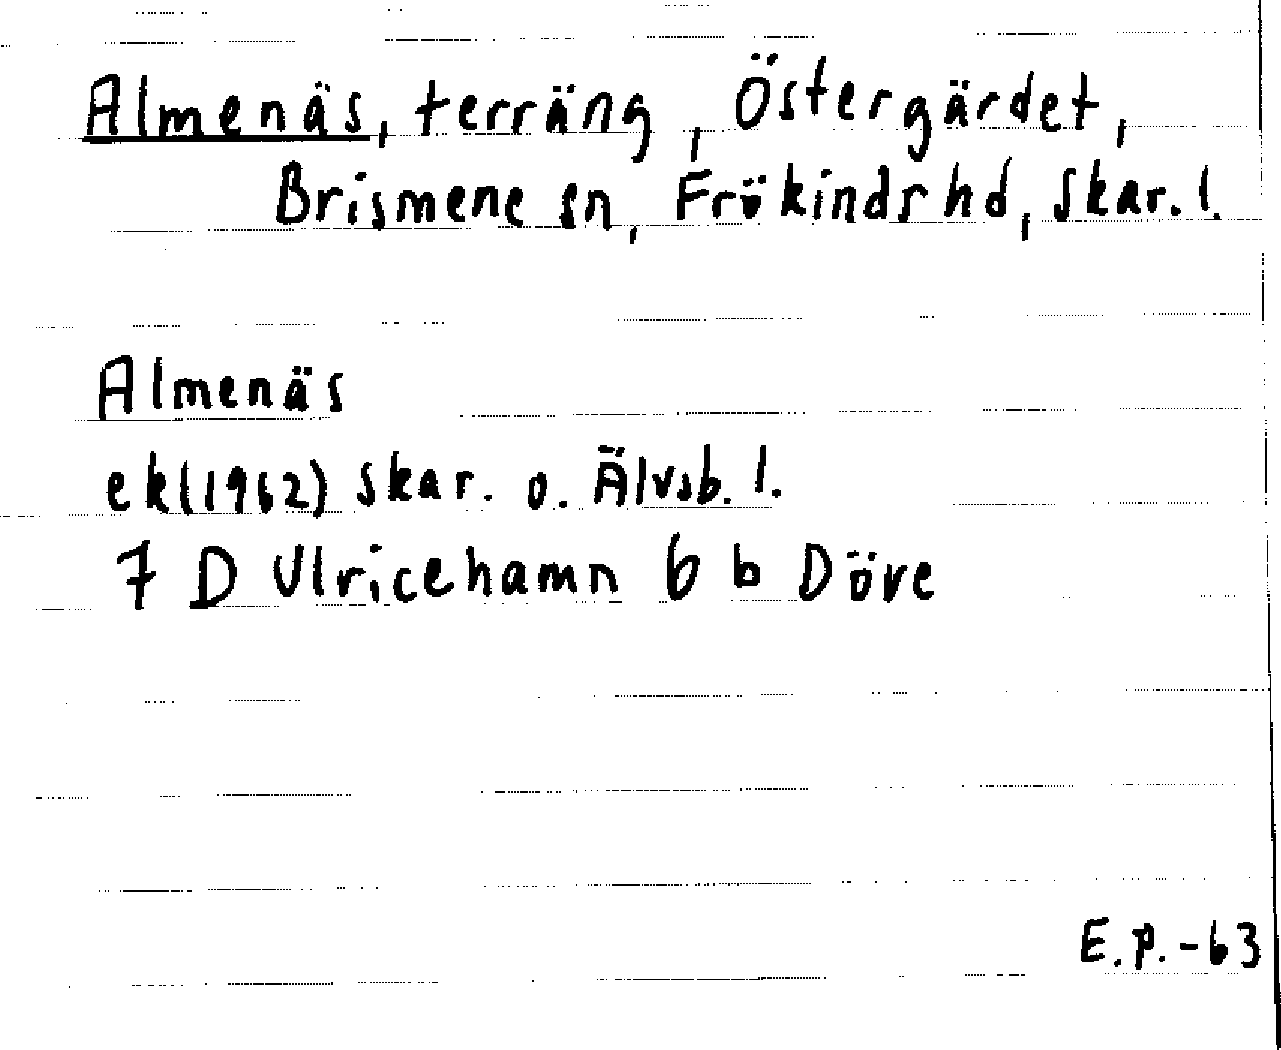 Almenäs, terräng, Östergärdet,
Brismene sn, Frökinds hd, Skar. l.
Almenäs
ek(1962) Skar. o. Älvsb. l.
7 D Ulricehamn 6 b Döve
E.P.-63